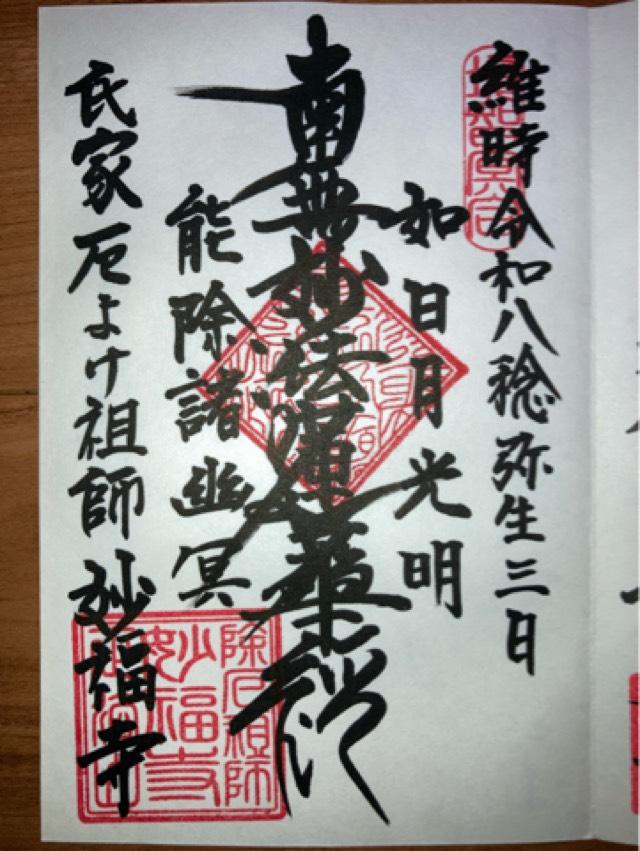 維時令和八稔弥生三日
如日月光明
南無妙法蓮華経
能除諸幽冥
氏家厄よけ祖師妙福寺
除厄祖師
妙福寺